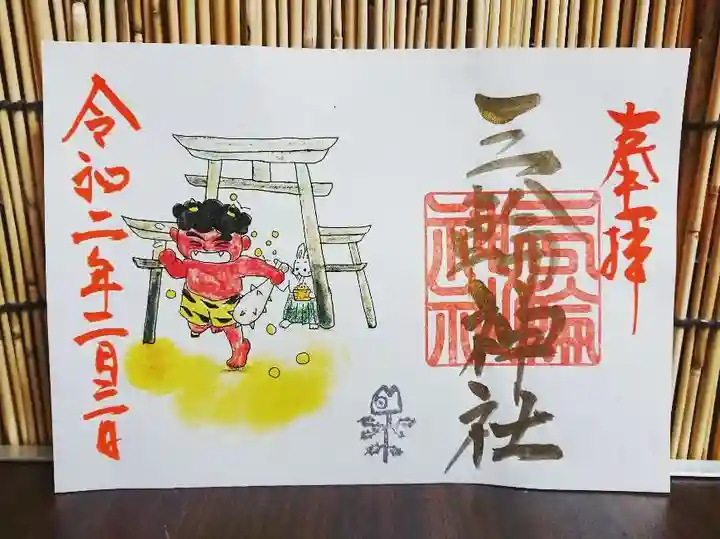 奉拝
三輪神社
三輪神社
令和二年二月二日